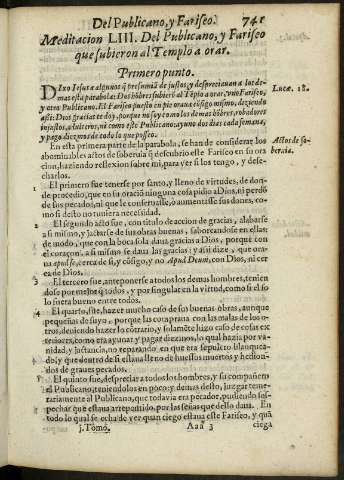 Del Publicano, y Fariseo. 741
Meditacion LIII. Del Publicano, y Fariseo
que subieron al Templo a orar.
Primero punto.
DIxo Iesus a algunos q̃ presumiã de justos, y despreciauan a los de-
mas esta parabola: Dos hõbres subierõ al Tẽplo a orar, vno Fariseo,
y otro Publicano. El Fariseo puesto en pie oraua cõsigo mismo, deziendo
assi: Dios gracias te doy, porque no soy como los demas hõbres, robadores
injustos, adulteros, ni como este Publicano; ayuno dos dias cada semana,
y pago diezmos de todo lo que posseo.
Lucæ. 18.
En esta primera parte de la parabola, se han de considerar los
abominables actos de soberuia q̃ descubrio este Fariseo en su ora
cion, haziendo reflexion sobre mi, para ver si los tengo, y dese-
charlos.
Actos de so-
beruia.
1 El primero fue tenerse por santo, y lleno de virtudes: de don-
de procedio, que en su oraciõ ninguna cosa pidio a Dios, ni perdõ
de sus pecados, ni que le conseruasse, o aumentasse sus dones, co-
mo si desto no tuuiera necessidad.
2 El segũdo acto fue, con titulo de accion de gracias, alabarse
a si mismo, y jactarse de sus obras buenas, saboreandose en ellas:
de modo, que con la boca solo daua gracias a Dios, porque con
el coraçon, a si mismo se daua las gracias: y assi dize, que ora-
ua apud se, cerca de si, y cõsigo, y no Apud Deum, con Dios, ni cer
ca de Dios.
3 El tercero fue, anteponerse a todos los demas hombres, tenien
dose por mejor q̃ todos, y por singular en la virtud, como si el so
lo fuera bueno entre todos.
4 El quarto fue, hazer mucho caso de sus buenas obras, aunque
pequeñas de suyo, porque las comparaua con las malas de los o-
tros, deuiendo hazer lo cõtrario, y solamẽte hizo caso de cosas ex
teriores, como era ayunar, y pagar diezmos, lo qual hazia por va-
nidad, y jactancia, no reparando en que era sepulcro blanquea-
do, y que dentro de si estaua lleno de huessos muertos, y hedion-
dos de graues pecados.
5 El quinto fue, despreciar a todos los hombres, y su compañero
el Publicano, teniendolos en poco; y demas desto, juzgar teme-
rariamente al Publicano, que todavia era pecador, pudiendo sos-
pechar que estaua arrepentido, por las señas que dello daua. En
todo lo qual se echa de ver quan ciego estaua este Fariseo, y quã
j. Tomo. Aaa 3 ciega